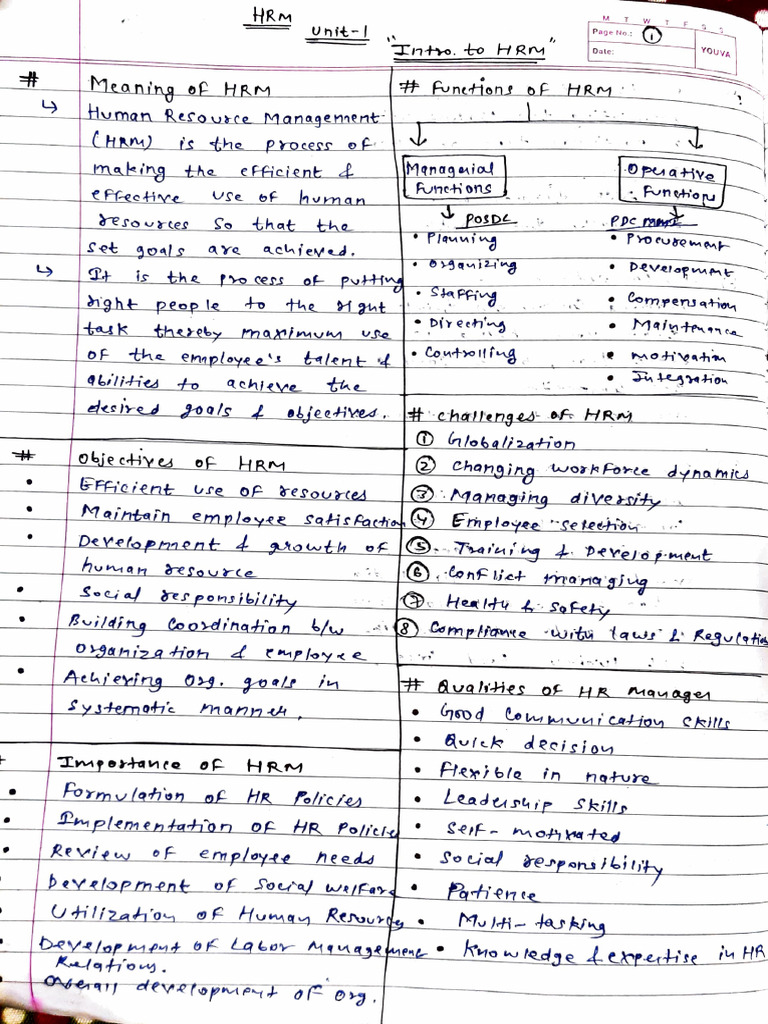 HRM
Unit-1
"Intro. to HRM"
M T W T F S S
Page No.: 1
Date:
YOUVA
# Meaning of HRM
↳ Human Resource Management
(HRM) is the process of
making the efficient &
effective use of human
resources so that the
set goals are achieved.
↳ It is the process of putting
right people to the right
task thereby maximum use
of the employee's talent &
abilities to achieve the
desired goals & objectives.
# Objectives of HRM
• Efficient use of resources
• Maintain employee satisfaction
• Development & growth of
human resource
• Social responsibility
• Building Coordination b/w
organization & employee
• Achieving Org. goals in
systematic manner.
Importance of HRM
• Formulation of HR Policies
• Implementation of HR Policies
• Review of employee needs
• Development of Social welfare
• Utilization of Human Resources
• Development of Labor Management
Relations.
• Overall development of org.
# Functions of HRM
Managerial
Functions
POSDC
• Planning
• Organizing
• Staffing
• Directing
• Controlling
Operative
Functions
PDC MMI
• Procurement
• Development
• Compensation
• Maintenance
• Motivation
• Integration
# Challenges of HRM
① Globalization
② Changing workforce dynamics
③ Managing diversity
④ Employee selection
⑤ Training & Development
⑥ Conflict managing
⑦ Health & Safety
⑧ Compliance with laws & Regulation
# Qualities of HR Manager
• Good Communication skills
• Quick decision
• Flexible in nature
• Leadership skills
• Self-motivated
• Social responsibility
• Patience
• Multi-tasking
• Knowledge & expertise in HR